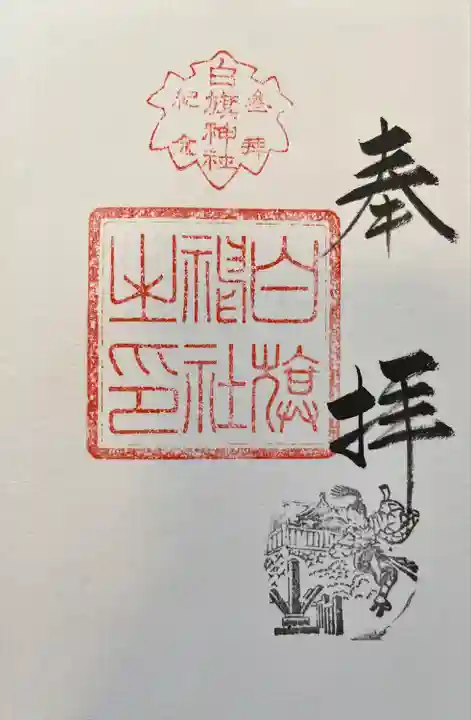 奉拝
白旗神社
参拝
記念
白旗
神社
之印